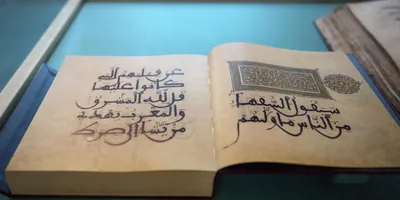 سيقول السفها
من الناس ما ولهم
عن قبلتهم التى
كانوا عليها
قل لله المشرق
والمغرب يهدى
من يشا الى صرط